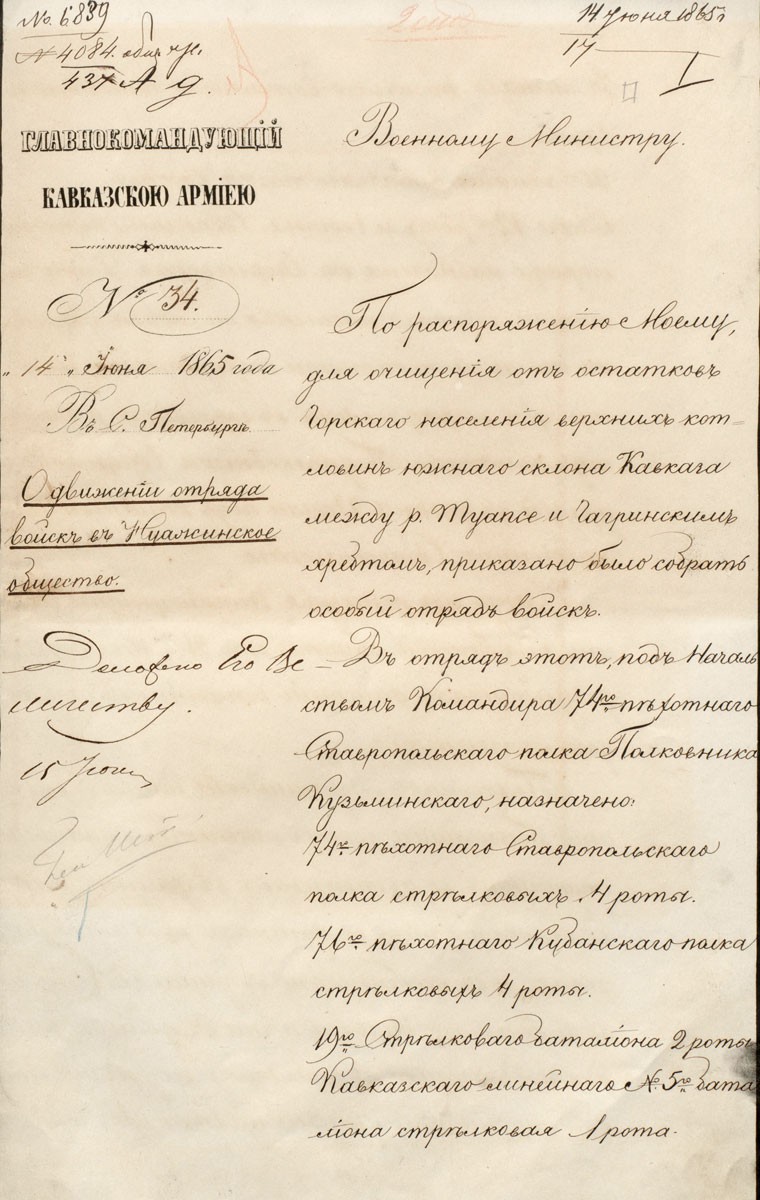 № 6839
№ 4084. общ. чл.
437 А д.
14 Июня 1865 г
17
I
ГЛАВНОКОМАНДУЮЩІЙ
КАВКАЗСКОЮ АРМІЕЮ
№ 34.
„14" Июня 1865 года
Въ С. Петербургѣ.
О движеніи отряда
войскъ въ
общество.
Доложено Его Ве
личеству.
15 Июня
Военному Министру.
По распоряженію Моему,
для очищенія отъ остатковъ
Горскаго населенія верхнихъ кот-
ловинъ южнаго склона Кавказа
между р. Туапсе и Гагринскимъ
хребтомъ, приказано было собрать
особый отрядъ войскъ.
Въ отрядъ этотъ, подъ Началь
ствомъ Командира 74го пѣхотнаго
Ставропольскаго полка Полковника
Кузьминскаго, назначено:
74го пѣхотнаго Ставропольскаго
полка стрѣлковыхъ 4 роты.
76го пѣхотнаго Кубанскаго полка
стрѣлковыхъ 4 роты.
19го Стрѣлковаго баталіона 2 роты
Кавказскаго линейнаго № 5го бата
ліона стрѣлковая 1 рота.